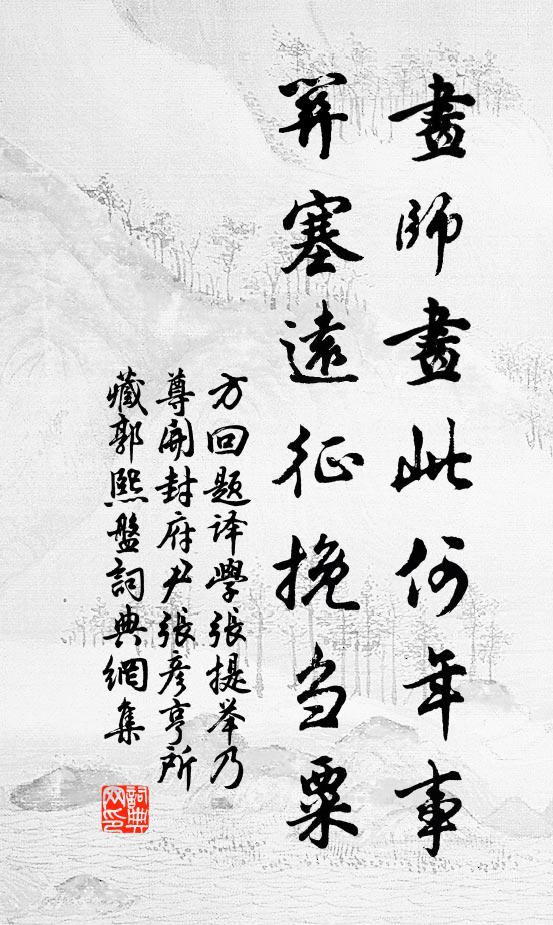 畫師畫此何年事
并塞遠征挽刍粟
方回题译學張提举乃
尊開封府尹張彦亨所
藏郭熙盤詞典網集
詞典
网印